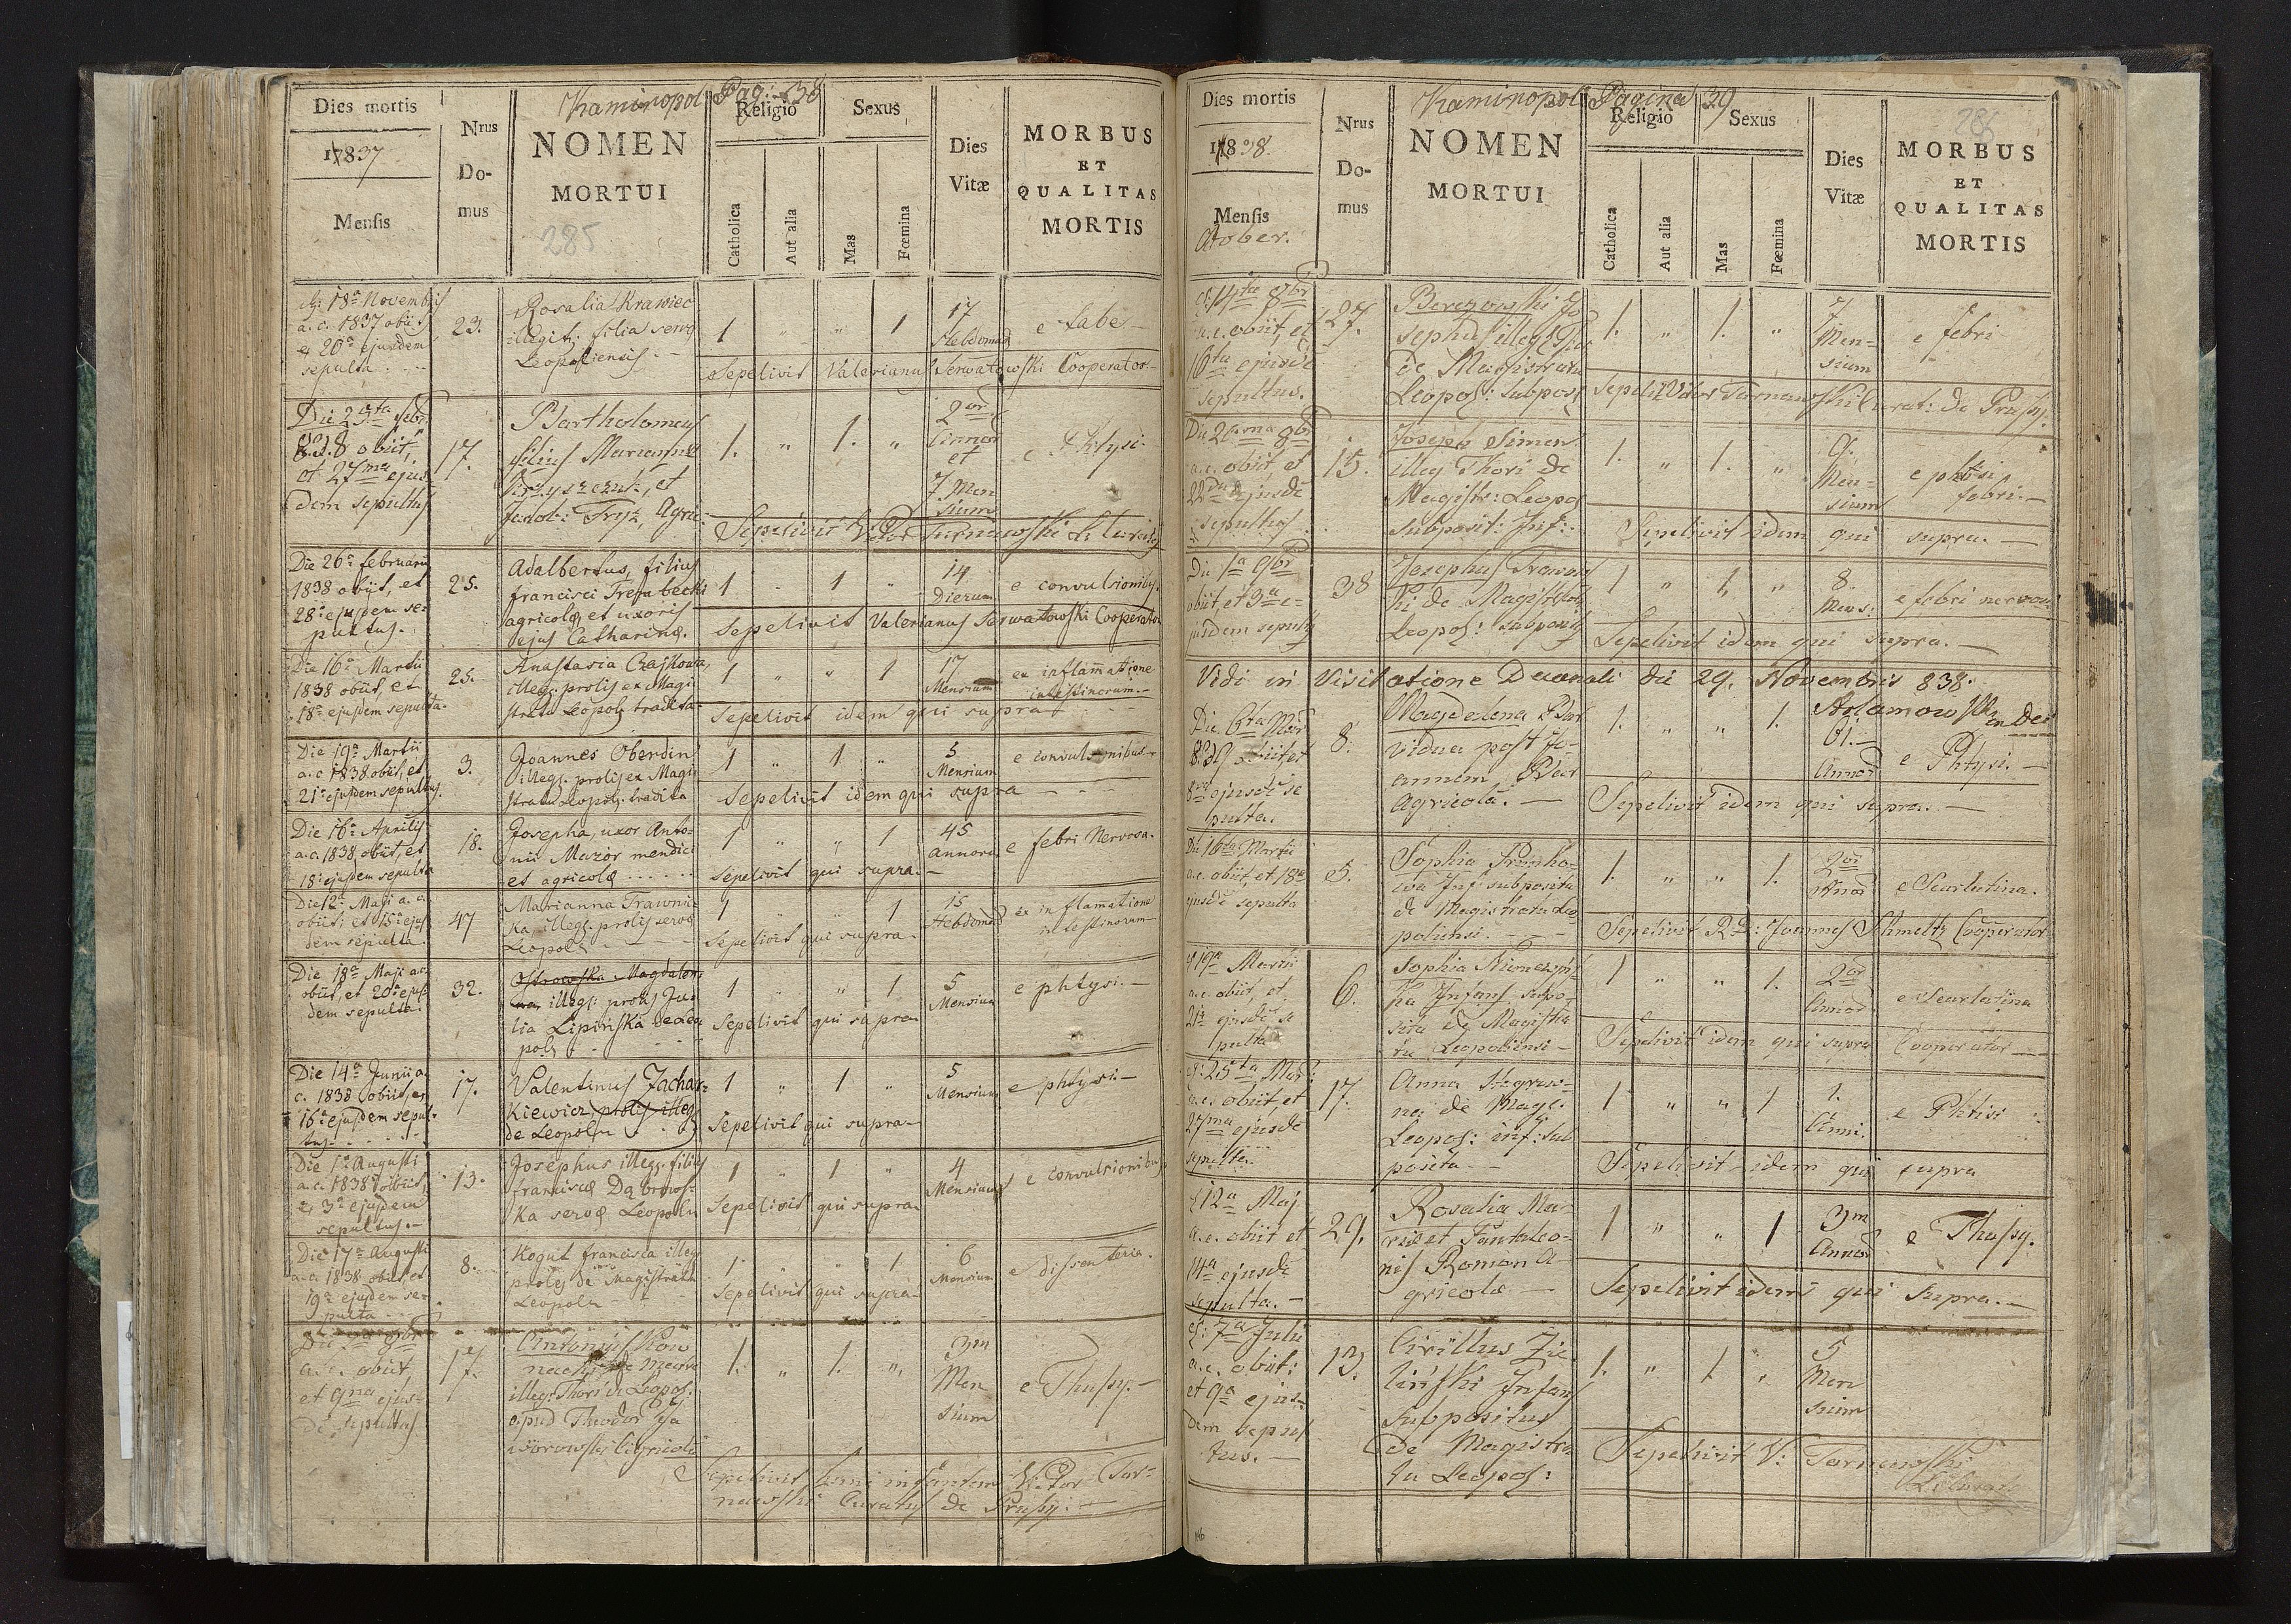 Kaminopol Pag: 38
Dies mortis
17837
Mensis
Nrus
Do-
mus
NOMEN
MORTUI
285
Religio
Catholica
Aut alia
Sexus
Mas
Fœmina
Dies
Vitæ
MORBUS
ET
QUALITAS
MORTIS
18a Novembris
a.c. 1837 obiit
et 20a ejusdem
sepulta
23.
Rosalia Krawiec
illegit: filia servæ
Leopoliensis
1 " " 1
17
Hebdomad
e tabe
Sepelivit Valerianus Serwatowski Cooperator
Die 25ta febr
838 obiit,
et 27ma ejus
dem sepultus
17.
Bartholomeus
filius Mariannæ
et
Jacobi Fryz, Agric:
1. " 1. "
2or
Annor
et
7 Men
sium
e Phtysi.
Sepelivit Victor Tarnawski
Die 26a februarii
1838 obiit, et
28a ejusdem se-
pultus.
25.
Adalbertus, filius
francisci Trembecki
agricolæ, et uxoris
ejus Catharinæ.
1 " 1 "
14
Dierum
e convulsionibus.
Sepelivit Valerianus Serwatowski Cooperator
Die 16a Martii
1838 obiit, et
18a ejusdem sepulta.
25.
Anastasia Czajkowa,
illeg. prolis ex Magi-
stratu Leopol: tradita
1 " " 1
17
Mensium
ex inflamatione
intestinorum.
Sepelivit idem qui supra
Die 19a Martii
a.c 1838 obiit, et
21a ejusdem sepultus.
3.
Joannes Oberdin
illeg. prolis ex Magi
stratu Leopol: tradita
1 " 1 "
5
Mensium
e convulsionibus
Sepelivit idem qui supra
Die 16a Aprilis
a.c. 1838 obiit, et
18a ejusdem sepulta
18.
Josepha, uxor Anto-
nii Mazor mendici
et agricolæ
1 " " 1
45
annor.
e febri Nervosa.
Sepelivit qui supra.
Die 12a Maji a.c.
obiit, et 15a ejus
dem sepulta.
47
Marianna Trawnic
ka, illeg. prolis servæ
Leopoln
1 " " 1
15
Hebdomad
ex inflamatione
intestinorum
Sepelivit qui supra.
Die 18a Maji a.c.
obiit, et 20a ejus-
dem sepulta.
32.
Ostrowska Magdalen
illeg: prolis Ju-
lia Lipińska de Leo
pol:
1 " " 1
5
Mensium
e phtysi.
Sepelivit qui supra
Die 14a Junii a.
c. 1838 obiit, et
16a ejusdem sepul-
tus
17.
Valentinus Zachar-
kiewicz prolis illeg
de Leopoln
1 " 1 "
5
Mensium
e phtysi.
Sepelivit qui supra
Die 1a Augusti
a.c. 1838 obiit,
et 3a ejusdem
sepultus.
13.
Josephus illeg. filius
franciscæ Dąbrows-
ka servæ Leopoln
1 " 1 "
4
Mensium
e convulsionibus
Sepelivit qui supra
Die 17a Augusti
a.c. 1838 obiit, et
19a ejusdem se-
pulta
8.
Kogut francisca illeg
prolis de Magistratu
Leopoln
1 " " 1
6
Mensium
e dissenteria.
Sepelivit qui supra
a.c. obiit,
et 9na ejus-
de sepultus
17.
Antonius Kow
illeg: Thori de Leopol:
apud Theodor Ja
worowski Agricola
1. " 1. "
3m
Men
sium
e Thussy.
Sepelivit hunc infantem Victor Tar-
nawski Curatus de Prussy.
Kaminopol Pagina 39
Dies mortis
17838
Mensis
8ber.
Nrus
Do-
mus
NOMEN
MORTUI
Religio
Catholica
Aut alia
Sexus
Mas
Fœmina
Dies
Vitæ
286
MORBUS
ET
QUALITAS
MORTIS
14ta 8br
a.c. obiit, et
16ta ejusde
sepultus.
27.
Berezowski Jo
sephus illeg:
de Magistratu
Leopol: subposi
1. " 1. "
7
Men-
sium
e febri
Sepelit Victor Tarnawski Curat: de Prussy.
Die 20ma 8br
a.c. obiit, et
22da ejusde
sepultus
15.
Joseph Simon
illeg Thori de
Magistr: Leopol
subposit: Inf:
1. " 1. "
9.
Men-
sium
e phtisi
febri.
Sepelivit idem qui supra.
Die 1a 9br
obiit, et 3a e-
jusdem sepult
38
Josephus
ki de Magistratu
Leopol: subposit
1 " 1, "
8.
Mens:
e febri nervosa
Sepelivit idem qui supra.
Vidi in Visitatione Decanali die 29. Novembris 838.
Adamowski
Die 6ta Mar
839 obiit et
8va ejusde se
pulta.
8.
Magdelena
vidua post Jo-
annem
Agricola.
1. " " 1.
61.
Annor
e Phtysi.
Sepelivit idem qui supra.
Die 16ta Martii
a.c. obiit, et 18a
ejusde sepulta
5.
Sophia
Inf: subposita
de Magistratu Leo-
poliensi.
1. " " 1.
2or
Annor
e Scarlatina.
Sepelivit R.D: Joannes Schmeltz Cooperator
19a Martii
a.c. obiit, et
21a ejusde se
pulta
6.
Sophia
ka Infans supo-
sita de Magistra
tu Leopoliensi
1 " " 1.
2or
Annor
e Scarlatina
Sepelivit idem qui supra Cooperator
25ta Mar:
a.c. obiit, et
27ma ejusde
sepulta.
17.
Anna
de Mag:
Leopol: inf: sub
posita
1 " " 1
1.
Anni.
e Phtisi
Sepelivit idem qui supra
12a Maj
a.c. obiit et
14a ejusde
sepulta.
29.
Rosalia Ma-
riæ et Pantaleo-
nis Roman A-
gricolæ
1 " " 1
3m
Annor
e Thussy.
Sepelivit idem qui supra.
7a Julii
a.c. obiit:
et 9a ejus-
dem sepul
tus.
13.
Cirillus Zie
liński Infans
suppositus
de Magistra
tu Leopol:
1. " 1. "
5
Men
sium
Sepelivit V: Tarnawski